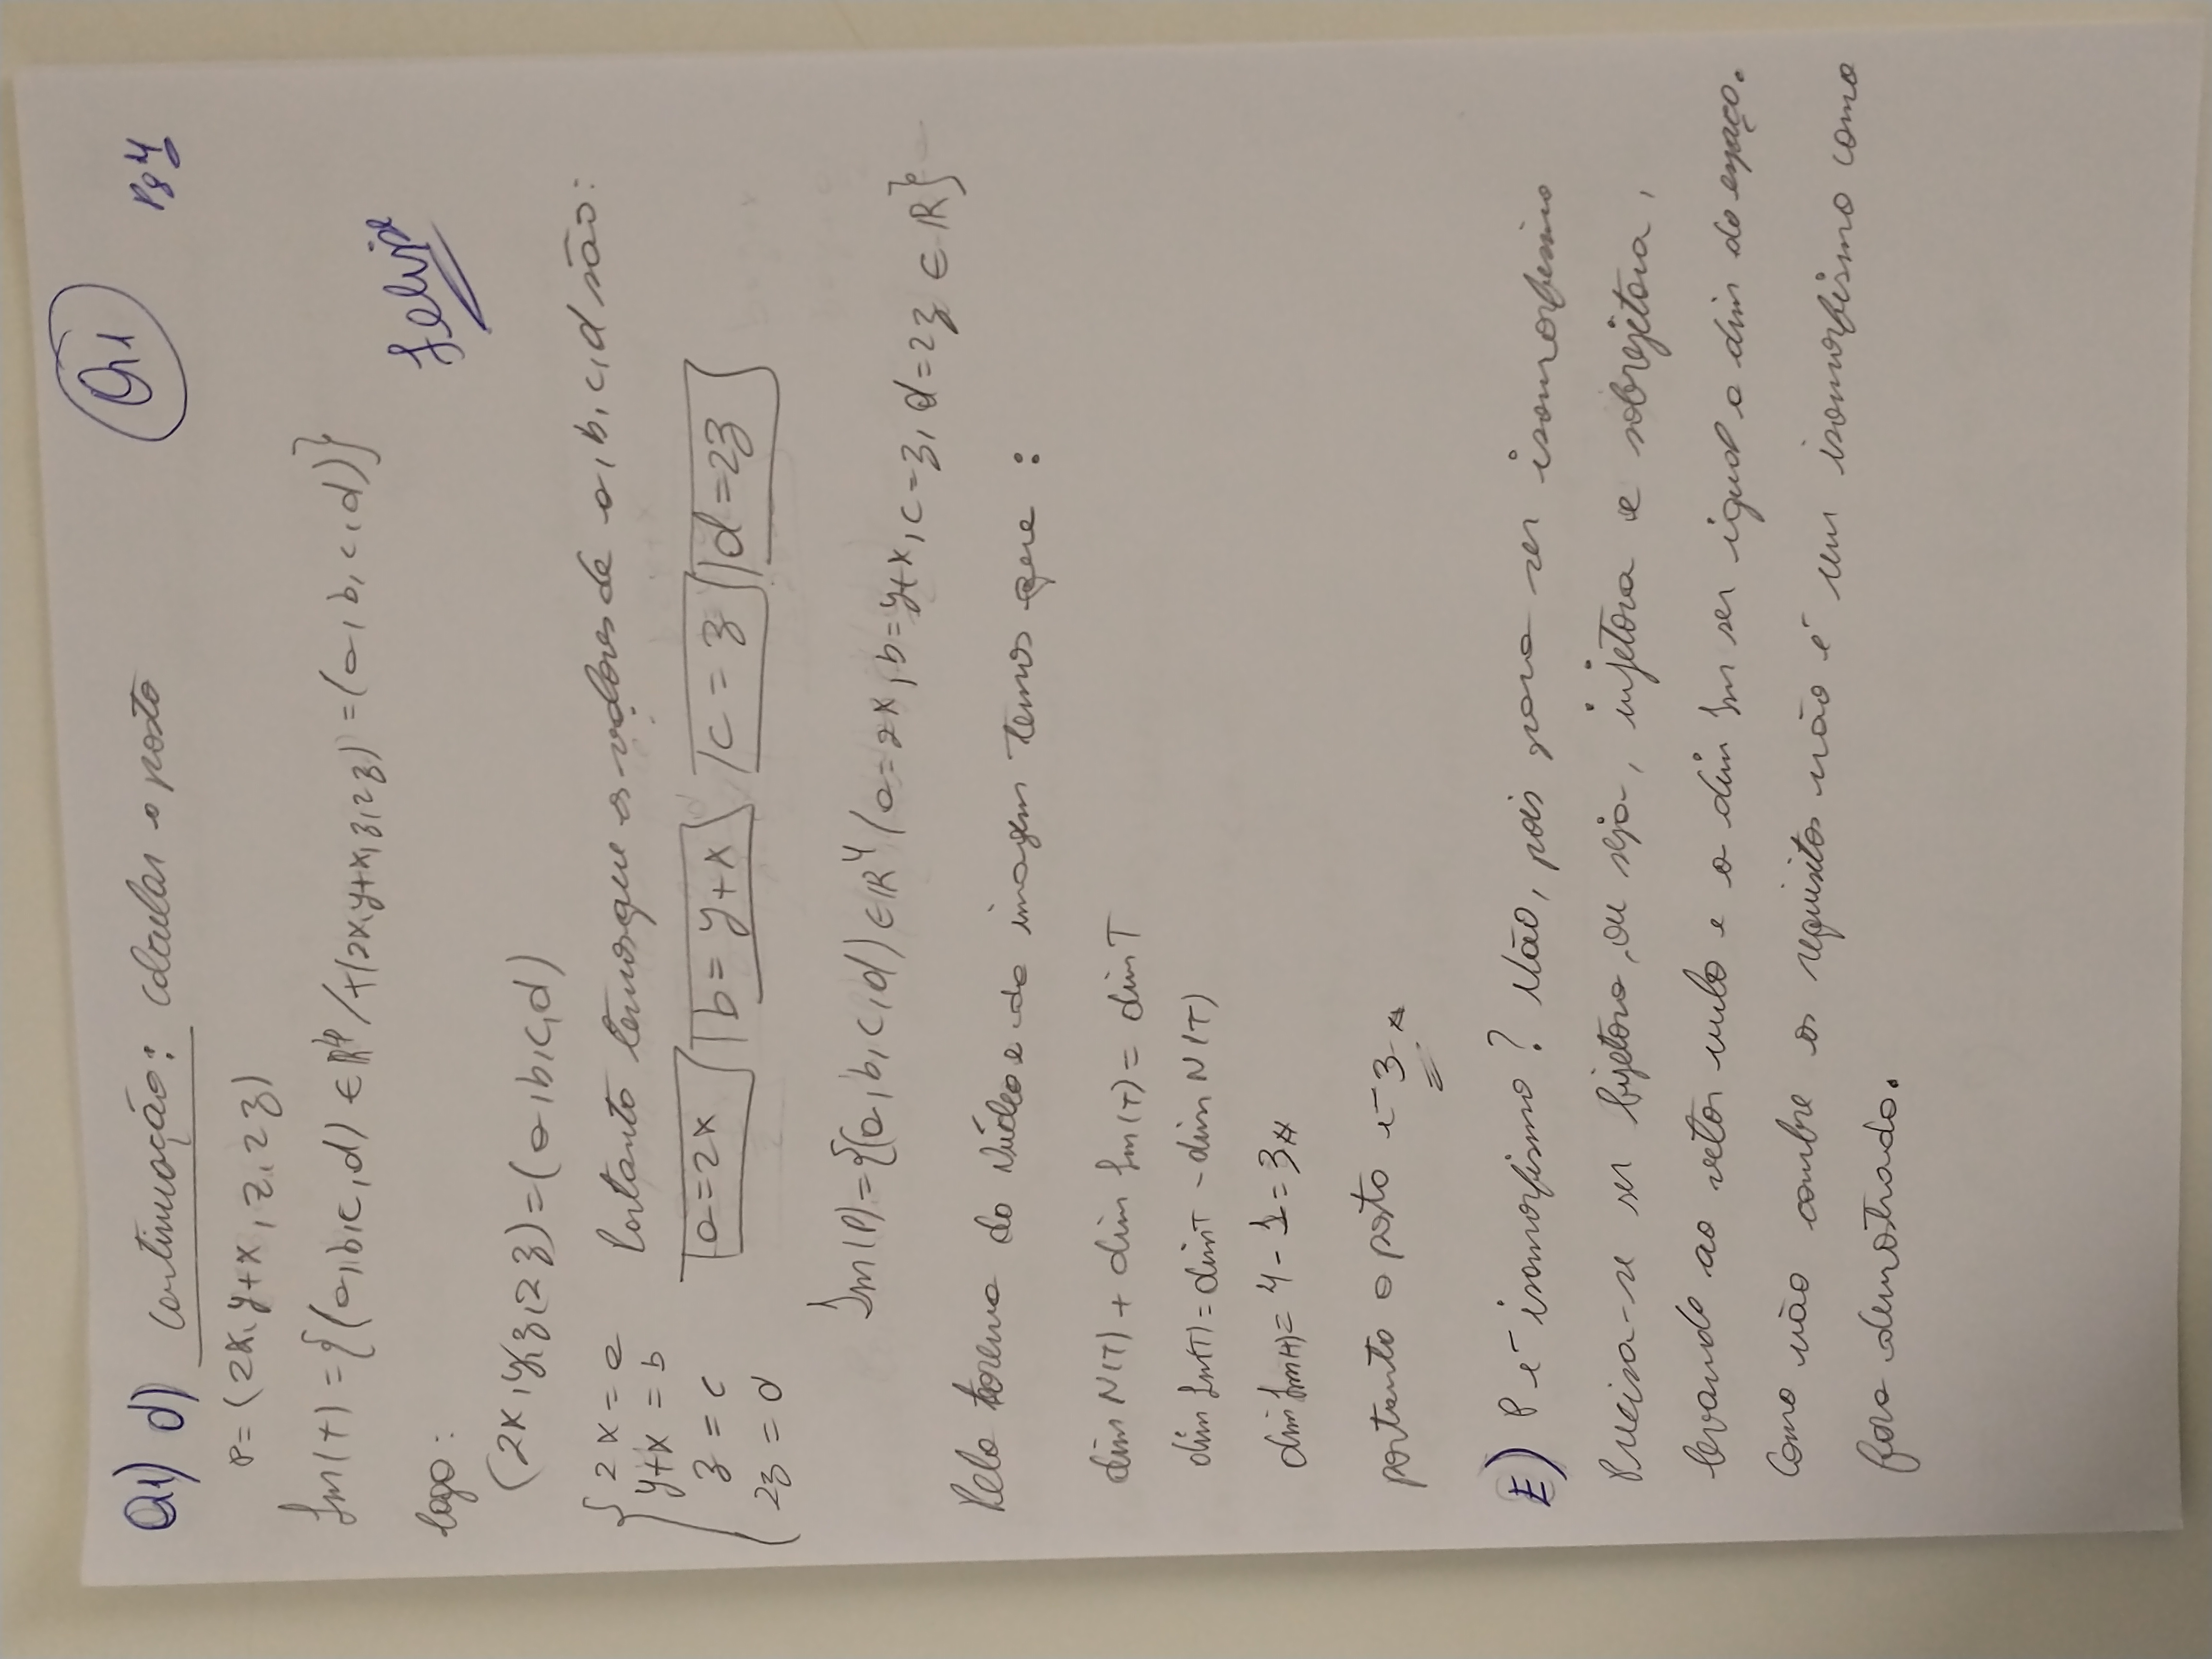 Q1) d) continuação: calcular o posto
Q1
Pg 4
P = (2x, y+x, z, 2z)
Im(T) = {(a,b,c,d) ∈ R⁴ / T(2x,y+x,z,2z) = (a,b,c,d)}
Felipe
logo:
(2x, y, z, 2z) = (a,b,c,d)
{ 2x = a
y+x = b
z = c
2z = d
Portanto temos que os valores de a, b, c, d são:
a=2x b = y+x c = z d = 2z
Im(P) = {(a,b,c,d) ∈ R⁴ / a=2x, b=y+x, c=z, d=2z ∈ R}
Pelo teorema do Núcleo e da imagem temos que :
dim N(T) + dim Im(T) = dim T
dim Im(T) = dim T - dim N(T)
dim Im(T) = 4 - 1 = 3
portanto o posto é 3
E) P é isomorfismo? Não, pois para ser isomorfismo
Precisa-se ser bijetora, ou seja, injetora e sobrejetora,
levando ao vetor nulo e a dim Im ser igual a dim do espaço.
Como não cumbre os requisitos não é um isomorfismo como
fora demostrado.